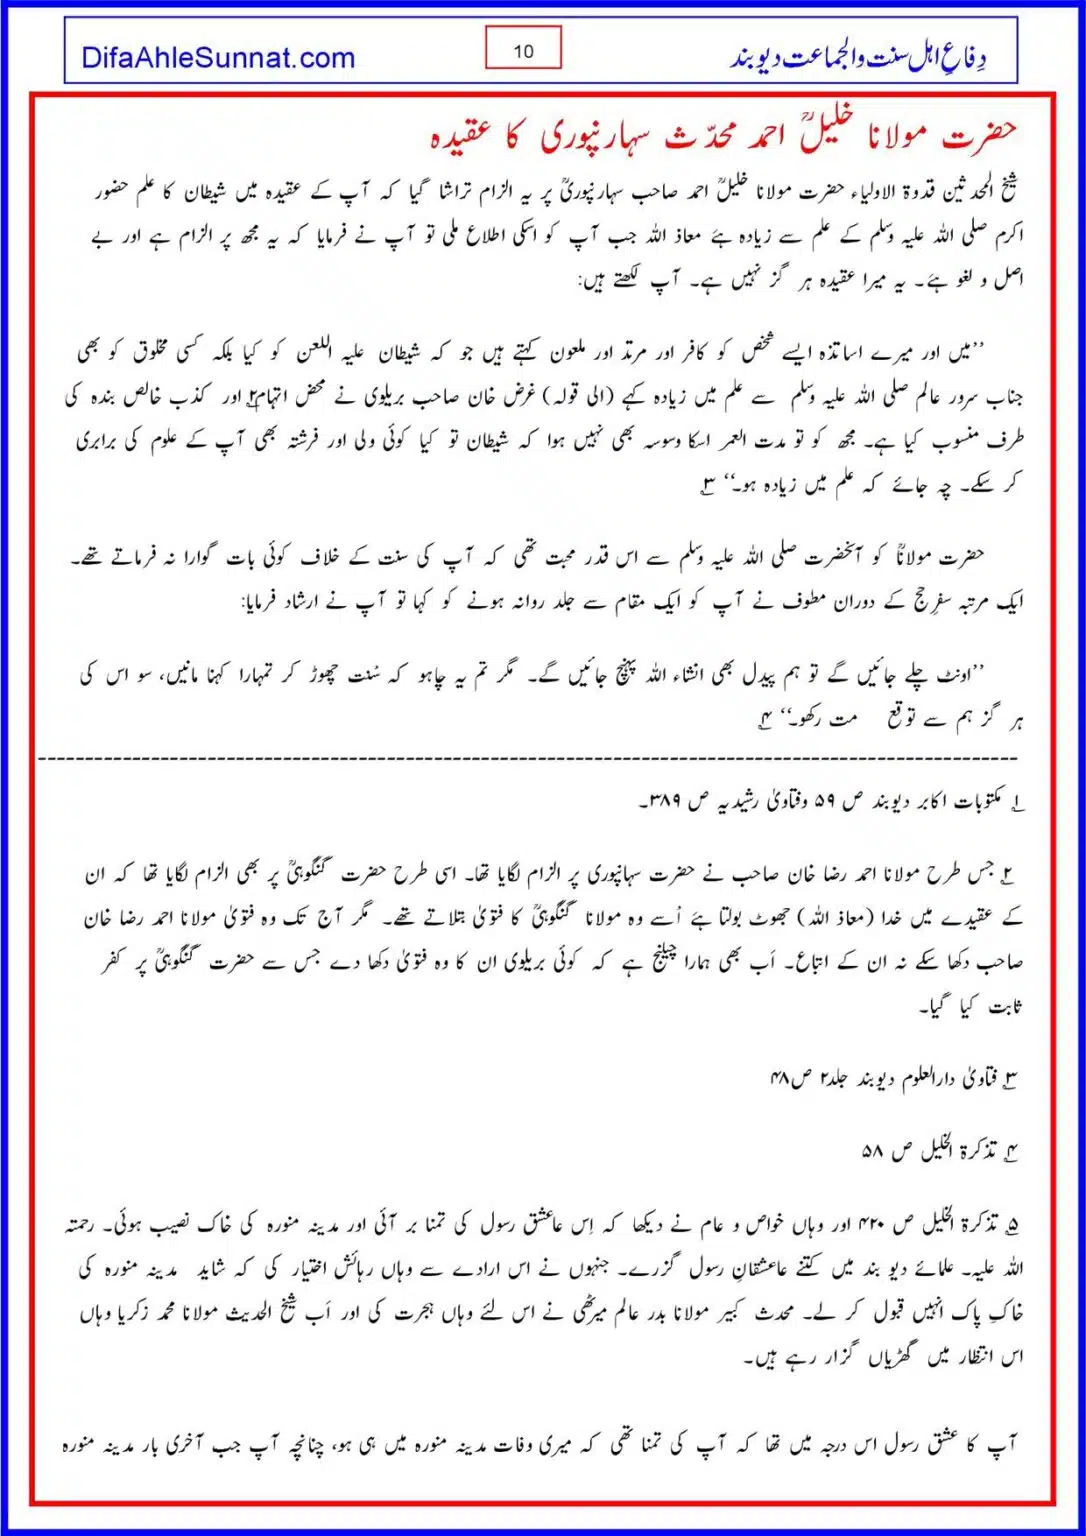 DifaAhleSunnat.com
10
دِفاعِ اہل سنت والجماعت دیوبند
حضرت مولانا خلیلؒ احمد محدّث سہارنپوری کا عقیدہ
شیخ المحدثین قدوۃ الاولیاء حضرت مولانا خلیلؒ احمد صاحب سہارنپوریؒ پر یہ الزام تراشا گیا کہ آپ کے عقیدہ میں شیطان کا علم حضور
اکرم صلی اللہ علیہ وسلم کے علم سے زیادہ ہئے معاذ اللہ جب آپ کو اسکی اطلاع ملی تو آپ نے فرمایا کہ یہ مجھ پر الزام ہے اور بے
اصل و لغو ہئے۔ یہ میرا عقیدہ ہر گز نہیں ہے۔ آپ لکھتے ہیں:
’’میں اور میرے اساتذہ ایسے شخص کو کافر اور مرتد اور ملعون کہتے ہیں جو کہ شیطان علیہ اللعن کو کیا بلکہ کسی مخلوق کو بھی
جناب سرور عالم صلی اللہ علیہ وسلم سے علم میں زیادہ کہے (الی قولہ) غرض خان صاحب بریلوی نے محض اتہام؂۲ اور کذب خالص بندہ کی
طرف منسوب کیا ہے۔ مجھ کو تو مدت العمر اسکا وسوسہ بھی نہیں ہوا کہ شیطان تو کیا کوئی ولی اور فرشتہ بھی آپ کے علوم کی برابری
کر سکے۔ چہ جائے کہ علم میں زیادہ ہو۔‘‘ ؂۳
حضرت مولاناؒ کو آنحضرت صلی اللہ علیہ وسلم سے اس قدر محبت تھی کہ آپ کی سنت کے خلاف کوئی بات گوارا نہ فرماتے تھے۔
ایک مرتبہ سفرِ حج کے دوران مطوف نے آپ کو ایک مقام سے جلد روانہ ہونے کو کہا تو آپ نے ارشاد فرمایا:
’’اونٹ چلے جائیں گے تو ہم پیدل بھی انشاء اللہ پہنچ جائیں گے۔ مگر تم یہ چاہو کہ سُنت چھوڑ کر تمہارا کہنا مانیں، سو اس کی
ہر گز ہم سے توقع مت رکھو۔‘‘ ؂۴
؂۱ مکتوبات اکابر دیوبند ص ۵۹ وفتاویٰ رشیدیہ ص ۳۸۹۔
؂۲ جس طرح مولانا احمد رضا خان صاحب نے حضرت سہانپوری پر الزام لگایا تھا۔ اسی طرح حضرت گنگوہیؒ پر بھی الزام لگایا تھا کہ ان
کے عقیدے میں خدا (معاذ اللہ) جھوٹ بولتا ہئے اُسے وہ مولانا گنگوہیؒ کا فتویٰ بتلاتے تھے۔ مگر آج تک وہ فتویٰ مولانا احمد رضا خان
صاحب دکھا سکے نہ ان کے اتباع۔ اَب بھی ہمارا چیلنج ہے کہ کوئی بریلوی ان کا وہ فتویٰ دکھا دے جس سے حضرت گنگوہیؒ پر کفر
ثابت کیا گیا۔
؂۳ فتاویٰ دارالعلوم دیوبند جلد۲ ص۴۸
؂۴ تذکرۃ الخلیل ص ۵۸
؂۵ تذکرۃ الخلیل ص ۴۲۰ اور وہاں خواص و عام نے دیکھا کہ اِس عاشق رسول کی تمنا بر آئی اور مدینہ منورہ کی خاک نصیب ہوئی۔ رحمتہ
اللہ علیہ۔ علمائے دیو بند میں کتنے عاشقانِ رسول گزرے۔ جنہوں نے اس ارادے سے وہاں رہائش اختیار کی کہ شاید مدینہ منورہ کی
خاکِ پاک انہیں قبول کر لے۔ محدث کبیر مولانا بدر عالم میرٹھی نے اس لئے وہاں ہجرت کی اور اَب شیخ الحدیث مولانا محمد زکریا وہاں
اس انتظار میں گھڑیاں گزار رہے ہیں۔
آپ کا عشق رسول اس درجہ میں تھا کہ آپ کی تمنا تھی کہ میری وفات مدینہ منورہ میں ہی ہو، چنانچہ آپ جب آخری بار مدینہ منورہ